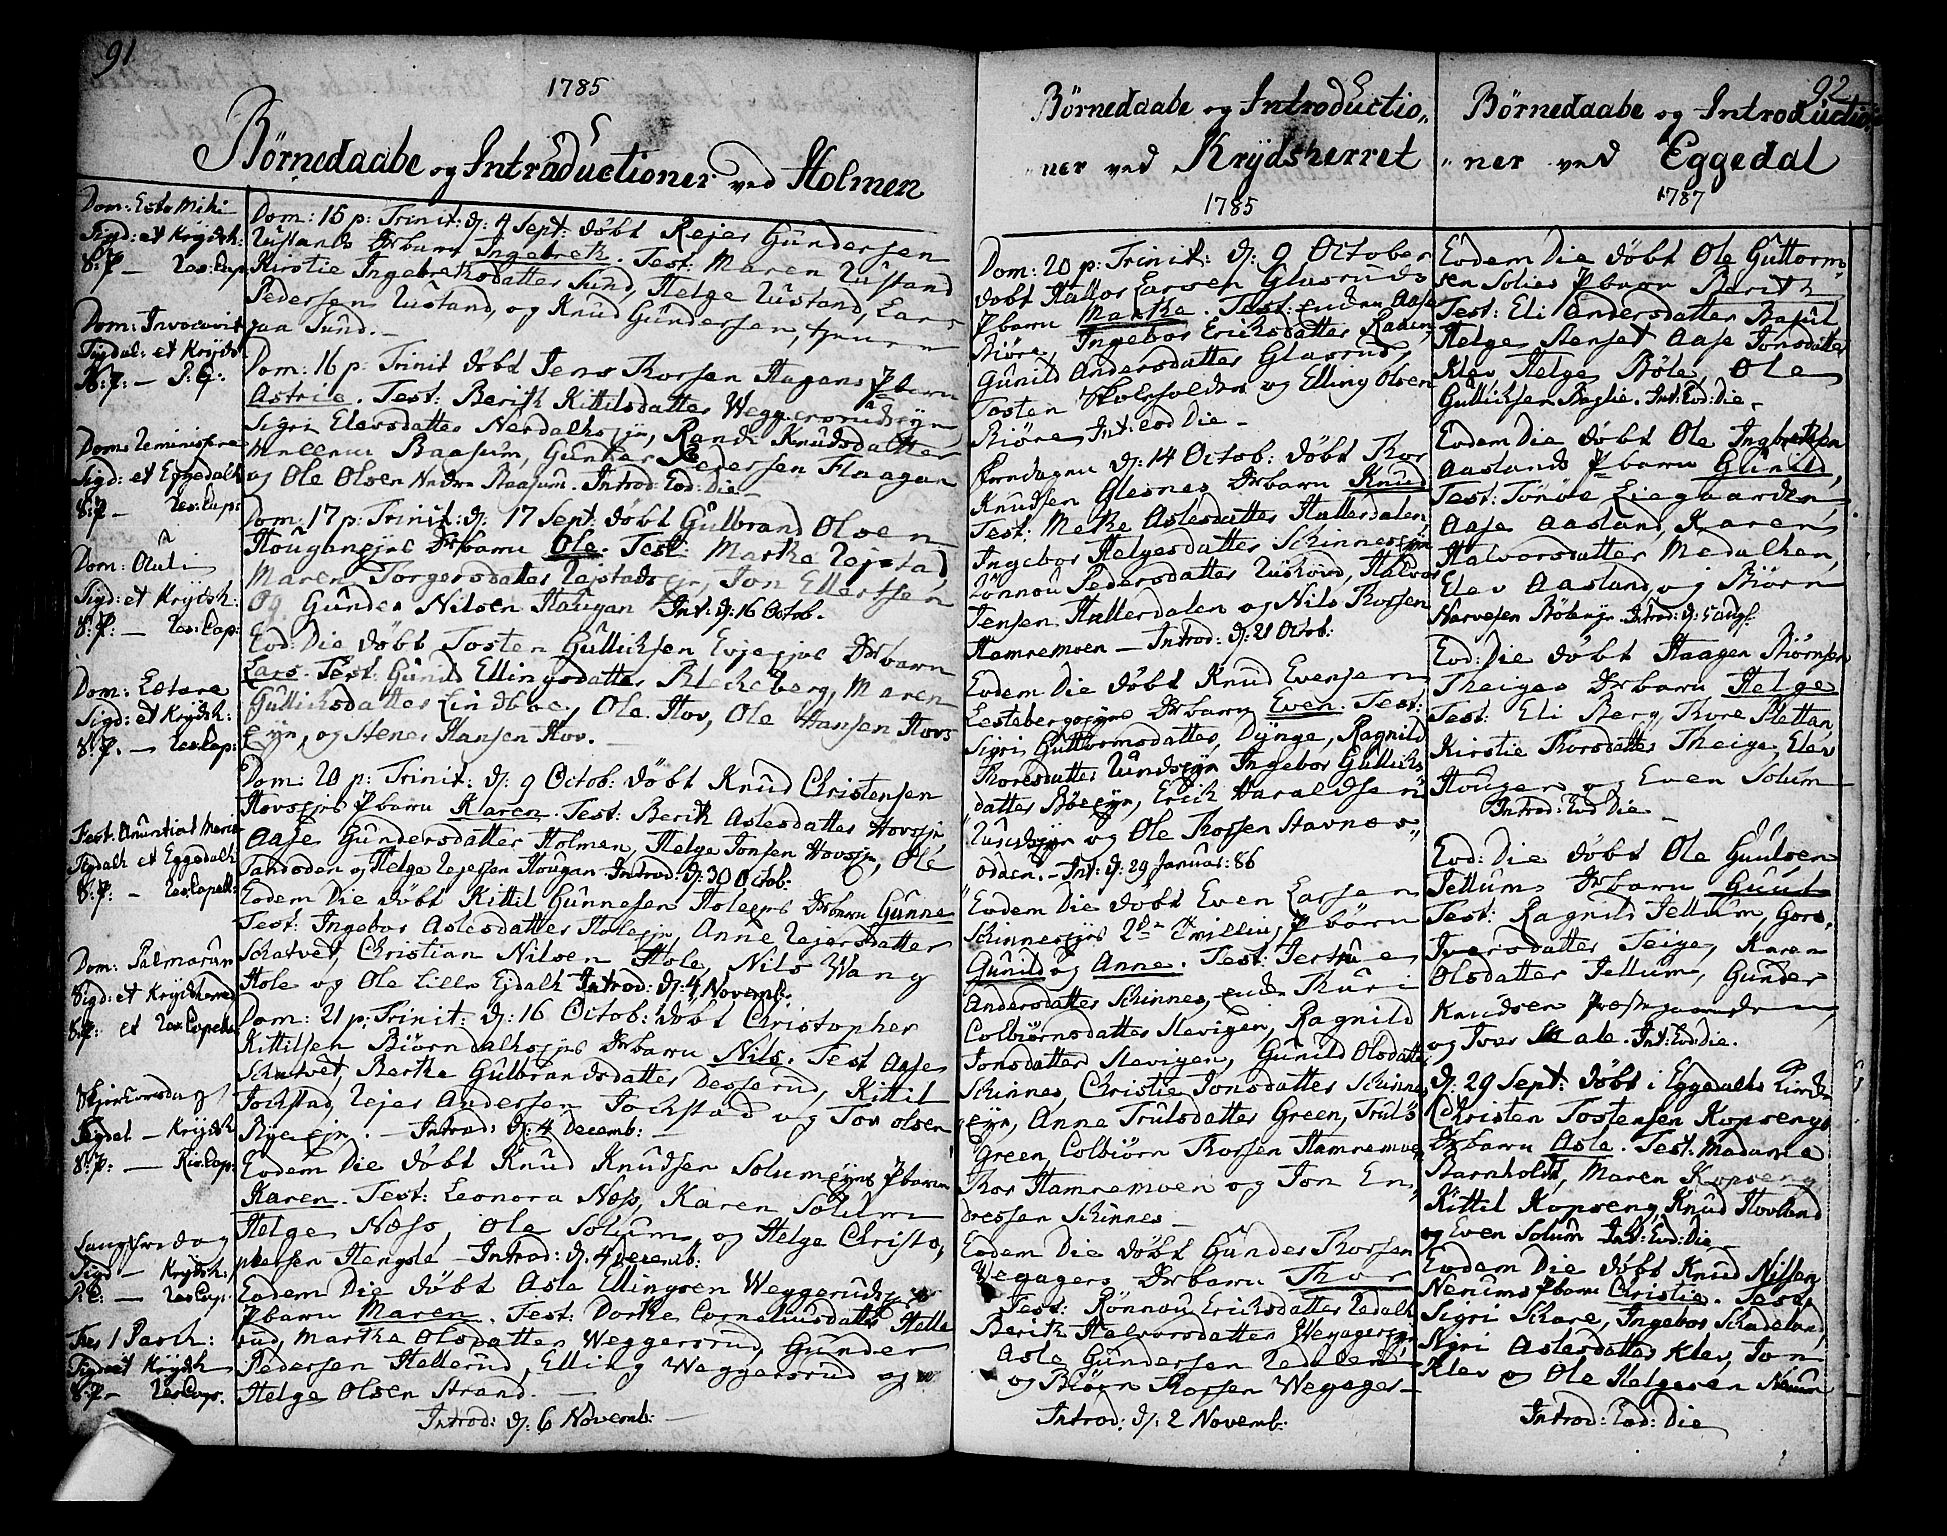 91
1785
Börnedaabe og Introductioner ved Holmen
Dom: Esto Mihi
Sigd: et Krydsh:
S: P — Res: Cap
Dom: Invocavit
Sigdal: et Krydsh
N: P: — P: C:
Dom: Reminiscere
Sigd: et Eggedalh
S: P — Res: Cap:
Dom: Oculi
Sigd: et Krydsh:
S: P: — Res: Cap:
Dom: Letare
Sigd: et Krydsh:
S: P. — Res: Cap:
Fest: Anuntiat Mariæ
Sigdalh et Eggedalh
S: P: — Res: Capell:
Dom: Palmarum
Sigd: et Krydsherred
S: P: et Res: Capella
Skjertorsdag
Sigdal — Krydsh
S: P: — Res: Cap:
Langfredag
Sigd — Krydsh:
P: C: — Res: Cap:
Fer 1 Pasch:
Sigd et Krydsh
S: P — Res: Cap.
Dom: 15 p: Trinit: d: 4 Sept: döbt Rejer Gundersen
Rustands Drbarn Ingebreth. Test: Maren Rustand
Kirstie Ingebrethsdatter Sund, Helge Rustand, Lars
Pedersen Rustand, og Knud Gundersen,
paa Sund. —
Dom: 16 p: Trinit döbt Jens Thorsen Hagens Pbarn
Astrie. Test: Berith Kittilsdatter Weggersrudejn
Sigri Elevsdatter Nerdalhsejn, Randi Knudsdatter
Baasum, Gunder Pedersen Flaagan
og Ole Olsen Nedre Baasum. Introd: Eod: Die —
Dom: 17 p: Trinit: d: 17 Sept: döbt Gulbrand Olsen
Hougansejes Drbarn Ole. Test: Marthe Rejstad
Maren Torgersdatter Rejstadejn, Jon Ellertsen
Og Gunder Nilsen Haugan Int: d: 16 Octob.
Eod: Die döbt Tosten Gulliksen Evjesejes Drbarn
Lars. Test: Gunild Ellingsdatter Blekeberg, Maren
Gulliksdatter Lindboe, Ole Hov, Ole Hansen Hovs
ejn, og Stener Hansen Hov. —
Dom: 20 p: Trinit: d: 9 Octob: döbt Knud Christensen
Hovsejes Pbarn Karen. Test: Berith Aslesdatter Hovsejn
Aase Gundersdatter Holmen, Helge Jonsen Hovsejn, Ole
Sandoden og Helge Rejersen Hougan Introd: d: 30 Octob:
Eodem Die döbt Kittil Gunnesen Holesejes Drbarn Gunne
Test: Ingebor Aslesdatter Holesejn, Anne Rejersdatter
Schatvet, Christian Nilsen Hole, Nils Wang
Hole og Ole Lille Ejdalh Introd: d: 4 Novemb:
Dom: 21 p: Trinit: d: 16 Octob: döbt Christopher
Kittilsen Biörndalhsejes Drbarn Nils. Test Aase
Schatvet, Berthe Gulbrandsdatter Desserud, Kittil
Jochstad, Rejer Andersen Jochstad og Tov Olsen
Ryeejn. — Introd: d: 4 Decemb: —
Eodem Die döbt Knud Knudsen Solumejes Pbarn
Karen. Test: Leonora Næss, Karen Solum
Helge Næss, Ole Solum, og Helge Christo,,
phersen Hengsle — Introd: d: 4 Decemb:
Eodem Die döbt Asle Ellingsen Weggerudsejes
Pbarn Maren. Test: Dorthe Corneliusdatter Helle
rud, Marthe Olsdatter Weggersrud, Gunder
Pedersen Hellerud, Elling Weggersrud og
Helge Olsen Strand. —
Introd: d: 6 Novemb: —
Börnedaabe og Introductio,,
ner ved Krydsherret
1785
Dom: 20 p: Trinit: d: 9 October
döbt Halvor Larsen Glasruds
Pbarn Marthe. Test: enken Aase
Biöre, Ingebor Ericksdatter Raaen,
Gunild Andersdatter Glasrud,
Tosten Skoleholder og Elling Olsen
Biöre, Int: eod Die —
Fredagen d: 14 Octob: döbt Thor
Knudsen Glesnes Drbarn Knud
Test: Mette Aslesdatter Hallerdalen,
Ingebor Helgesdatter Schinnesejn
Rönnou Pedersdatter Ruskövd, Halvor
Jensen Hallerdalen og Nils Thorsen
Hamremoen — Introd: d: 21 Octob:
Eodem Die döbt Knud Evensen
Lestebergsejes Drbarn Even. Test:
Sigri Guttormsdatter Dynge, Ragnild
Thoresdatter Rundsejn Ingebor Gulliks
datter Böeejn, Erick Haraldsen
og Ole Thorsen Stavnes,,
odden. — Int: d: 29 Januar: 86
Eodem Die döbt Even Larsen
Schinnesejes 2de Tvilling Pbörn
Gunild og Anne. Test: Jertrue
Andersdatter Schinnes, enke Thuri
Colbiörnsdatter Slevigen, Ragnild
Jonsdatter Slevigen, Gunild Olsdatter
Schinnes, Christie Jonsdatter Schinnes
ejn, Anne Trulsdatter Green, Truls
Green, Colbiörn Thorsen Hamremoen
Thor Hamremoen og Jon En,,
dressen Schinnes —
Eodem Die döbt Gunder Thorsen
Wegagers Drbarn Thor
Test: Rönnou Ericksdatter Redalh
Berith Halvorsdatter Wegagersejn
Asle Gundersen Redalen,
og Biörn Thorsen Wegager —
Introd: d: 2 Novemb:
92
Börnedaabe og Introductio
,,ner ved Eggedal
1787
Eodem Die döbt Ole Guttorm
sen Solies Pbarn Berith
Test: Eli Andersdatter Baslie
Helge Stenset Aase Jonsdatter
Klev Helge Böle, Ole
Gulliksen Baslie. Int: Eod: Die.
Eodem Die döbt Ole Ingbrethsen
Aaslands Pbarn Gunild,
Test: Tönöe Liegaarden,
Aase Aasland, Karen
Halvorsdatter Medalhen,
Elev Aasland, og Biörn
Narvesen Bölesejn Introd: d: 5 Augs.
Eod: Die döbt Haagen Biörnsen
Theiges Drbarn Helge
Test: Eli Berg, Thore Plettan,
Kirstie Thorsdatter Theige, Elev
Houger og Even Solum
Introd: Eod Die —
Eod: Die döbt Ole Guulsen
Jellums Drbarn Guul
Test: Ragnild Jellum, Goro
Iversdatter Teige, Karen
Olsdatter Jellum, Gunder
Knudsen Præstegaarden,
og Iver Male. Int: Eod: Die.
d: 29 Sept: döbt i Eggedalhs Kirche
Christen Tostensen Kopsengs
Drbarn Asle. Test: Madame
Barnholdt, Maren Kopseng
Kittil Kopseng, Knud Hovland
og Even Solum Int: Eod: Die —
Eodem Die döbt Knud Nilssen
Nerums Pbarn Christie. Test:
Sigri Schare, Ingebor Schadeland,
Sigri Aslesdatter Klev, Jon
Klev og Ole Helgesen Nerum
Introd: Eod: Die